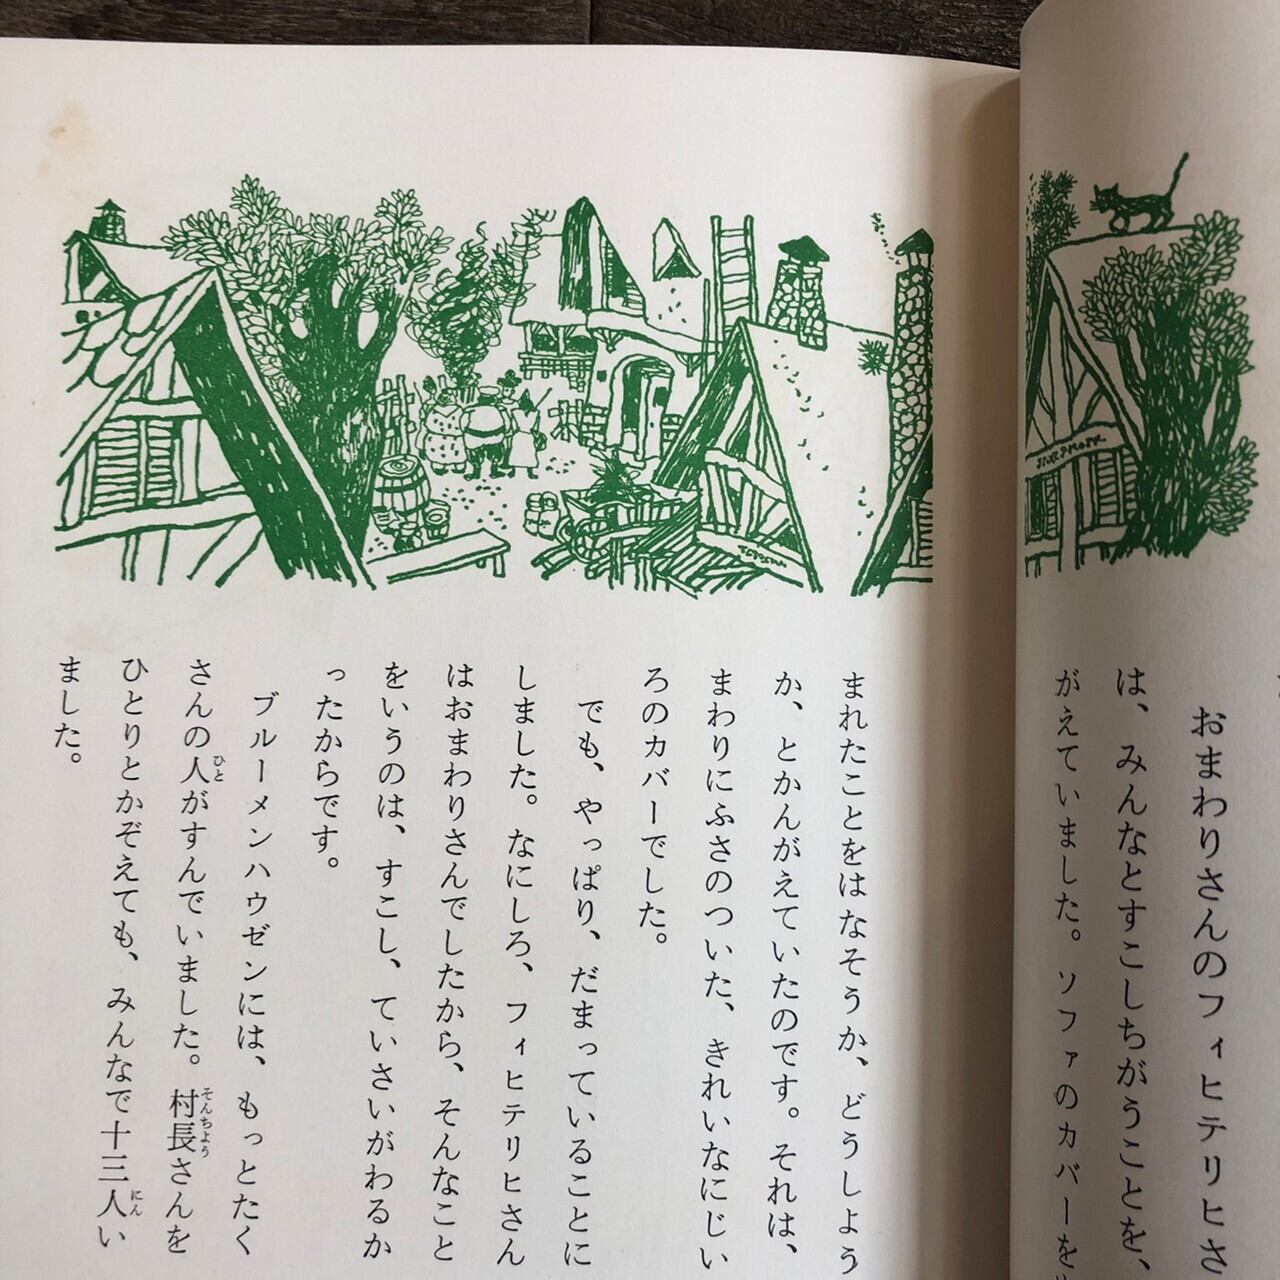 おまわりさんのフィヒテリヒさ
は、みんなとすこしちがうことを、
がえていました。ソファのカバーを
まれたことをはなそうか、どうしよう
か、とかんがえていたのです。それは、
まわりにふさのついた、きれいなにじい
ろのカバーでした。
でも、やっぱり、だまっていることに
しました。なにしろ、フィヒテリヒさん
はおまわりさんでしたから、そんなこと
をいうのは、すこし、ていさいがわるか
ったからです。
ブルーメンハウゼンには、もっとたく
さんの人がすんでいました。村長さんを
ひとりとかぞえても、みんなで十三人い
ました。